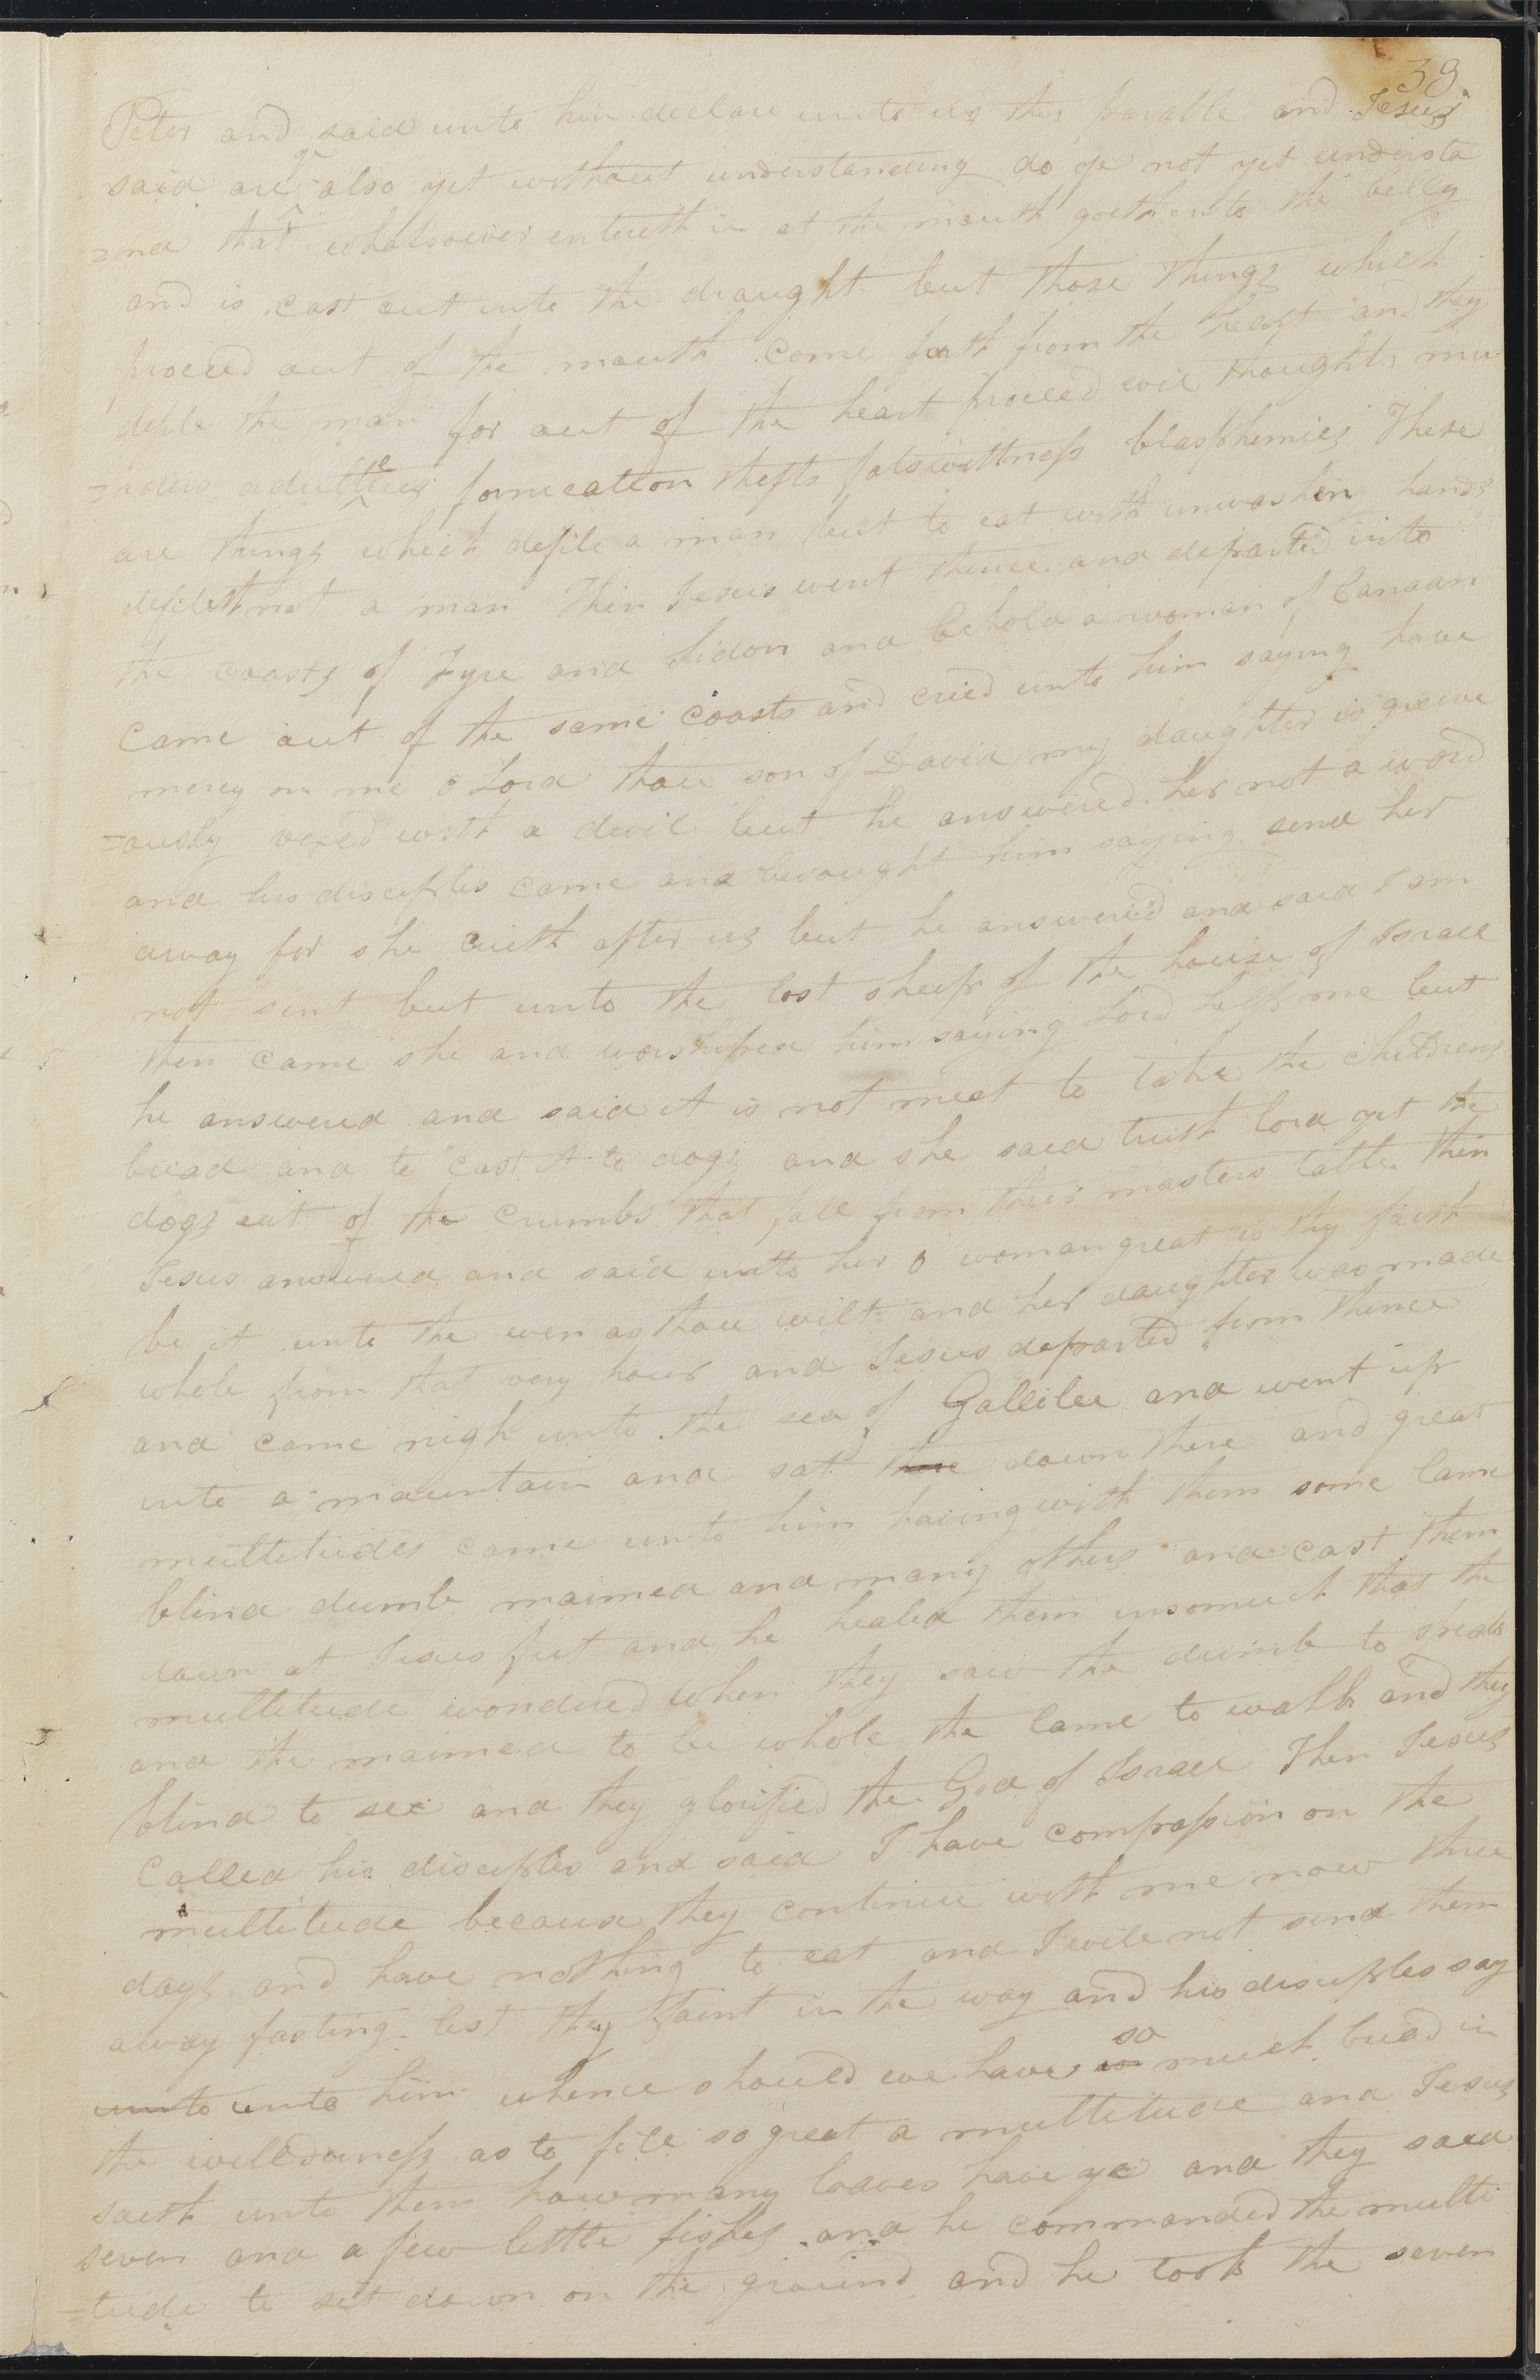 39
Peter and said unto him declare unto us this parable and Jesus
said are ye also yet without understanding do ye not yet understa
=nd that whatsoever entereth in at the mouth goeth into the belly
and is cast out into the draught but those things which
proceed out of the mouth come forth from the heart and they
defile the man for out of the heart proceed evil thoughts mu
=rders adulteries fornication thefts falswittness blasphemies These
are things which defile a man but to eat with unwashen hands
defileth not a man Then Jesus went thence and departed into
the coasts of Tyre and Sidon and behold a woman of Canaan
Came out of the same coasts and cried unto him saying have
mercy on me o Lord thou son of David my daughter is grieve
=ously vexed with a devil but he answered her not a word
and his disciples came and besought him saying send her
away for she crieth after us but he answered and said I am
not sent but unto the lost sheep of the house of Israel
then came she and worshiped him saying Lord help me but
he answered and said it is not meet to take the childrens
bread and to cast it to dogs and she said truth lord yet the
dogs eat of the crumbs that fall from their masters table then
Jesus answered and said unto her o woman great is thy faith
be it unto the even as thou wilt and her daughter was made
whole from that very hour and Jesus departed from thence
and came nigh unto the sea of Gallilee and went up
into a mountain and sat there down there and great
multitudes came unto him having with them some lame
blind dumb maimed and many others and cast them
down at Jesus feet and he healed them insomuch that the
multitude wondered when they saw the dumb to speak
and the maimed to be whole the lame to walk and they
blind to see and they glorified the God of Israel Then Jesus
Called his disciples and said I have compassion on the
multitude because they continue with me now three
days and have nothing to eat and I will not send them
away fasting lest they faint in the way and his disciples say
unto unto him whence should we have so much bread in
the willderness as to fill so great a multitude and Jesus
saith unto them how many loaves have ye and they said
seven and a few little fishes and he commanded the multi
=tude to sit down on the ground and he took the seven